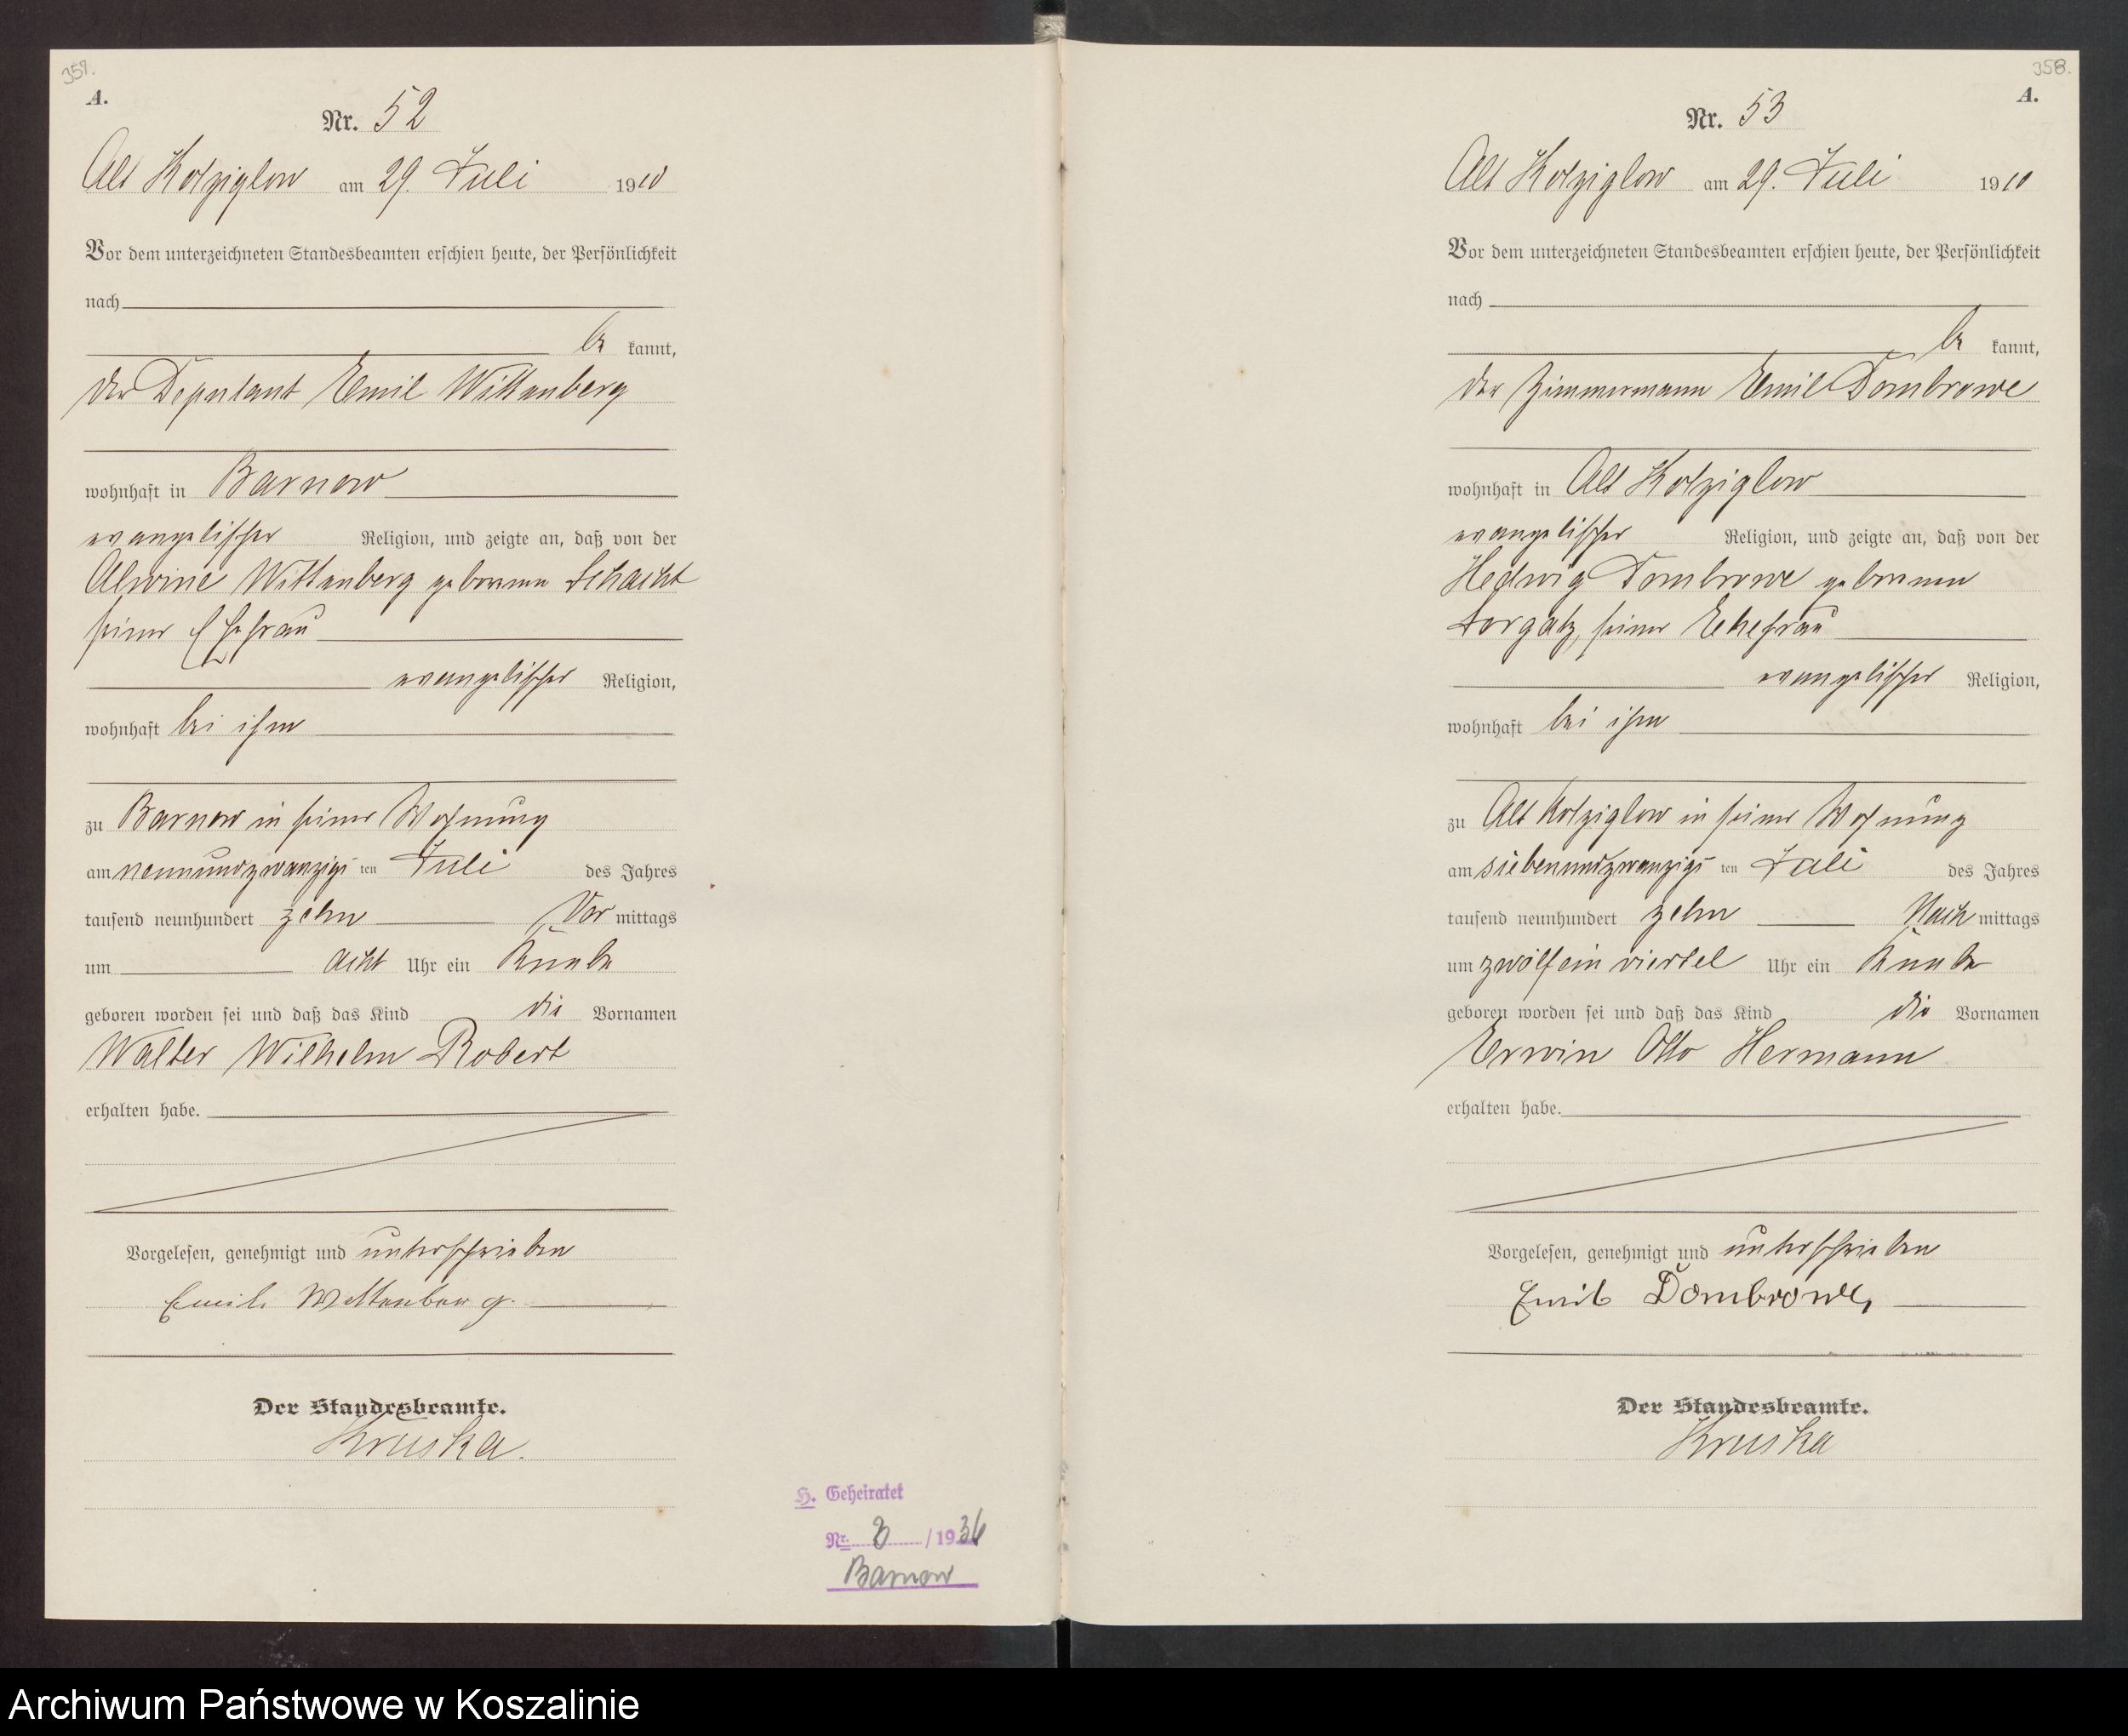 357.
A.
Nr. 52
Alt Kolziglow am 29. Juli 1910
Vor dem unterzeichneten Standesbeamten erschien heute, der Persönlichkeit
nach
be kannt,
der Deputant Emil Wittenberg
wohnhaft in Barnow
evangelischer Religion, und zeigte an, daß von der
Alwine Wittenberg geborenen Schacht
seiner Ehefrau
evangelischer Religion,
wohnhaft bei ihm
zu Barnow in seiner Wohnung
am neunundzwanzigs ten Juli des Jahres
tausend neunhundert zehn Vor mittags
um acht Uhr ein Knabe
geboren worden sei und daß das Kind die Vornamen
Walter Wilhelm Robert
erhalten habe.
Vorgelesen, genehmigt und unterschrieben
Emil Wittenberg.
Der Standesbeamte.
Kruska.
H. Geheiratet
Nr. 3 /1936
Barnow
358.
A.
Nr. 53
Alt Kolziglow am 29. Juli 1910
Vor dem unterzeichneten Standesbeamten erschien heute, der Persönlichkeit
nach
be kannt,
der Zimmermann Emil Dombrowe
wohnhaft in Alt Kolziglow
evangelischer Religion, und zeigte an, daß von der
Hedwig Dombrowe geborenen
Jorgatz, seiner Ehefrau
evangelischer Religion,
wohnhaft bei ihm
zu Alt Kolziglow in seiner Wohnung
am siebenundzwanzigs ten Juli des Jahres
tausend neunhundert zehn Nach mittags
um zwölfein viertel Uhr ein Knabe
geboren worden sei und daß das Kind die Vornamen
Erwin Otto Hermann
erhalten habe.
Vorgelesen, genehmigt und unterschrieben
Emil Dombrowe,
Der Standesbeamte.
Kruska
Archiwum Państwowe w Koszalinie